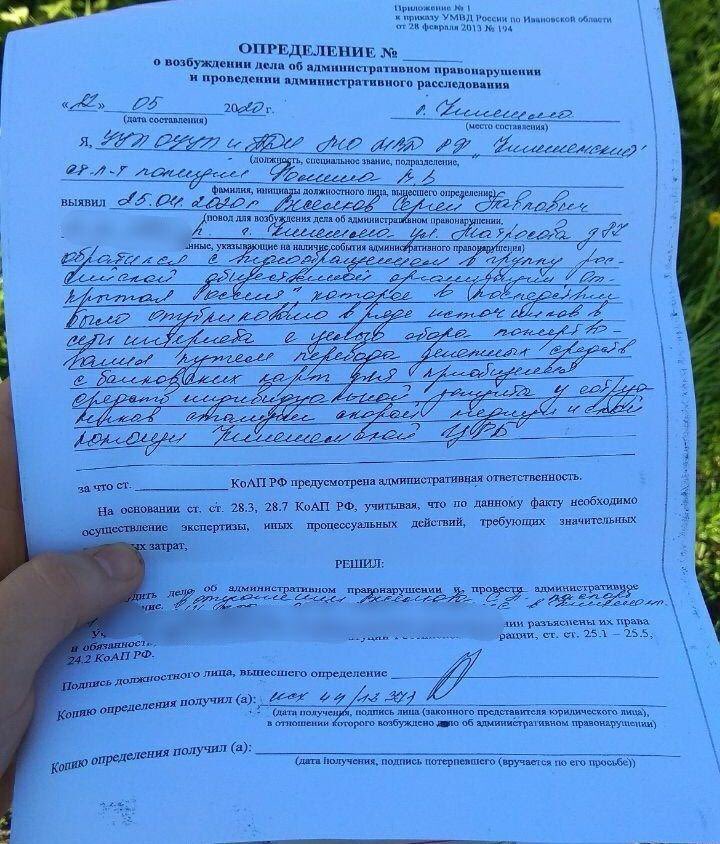 Приложение № 1
к приказу УМВД России по Ивановской области
от 28 февраля 2013 № 194
ОПРЕДЕЛЕНИЕ №
о возбуждении дела об административном правонарушении
и проведении административного расследования
« 22 » 05 2020 г. г. Кинешма
(дата составления) (место составления)
Я, УУП ОУУП и ПДН МО МВД РФ „Кинешемский"
(должность, специальное звание, подразделение,
ст. л-т полиции
фамилия, инициалы должностного лица, вынесшего определение)
выявил 25.04.2020г Сергей Павлович
(повод для возбуждения дела об административном правонарушении,
г. Кинешма ул. Матросова д
нные, указывающие на наличие события административного правонарушения)
обратился с видеообращением в группу рос-
сийской общественной организации „От-
крытая Россия", которое в последствии
было опубликовано в ряде источников в
сети интернета с целью сбора пожертво-
вания путем перевода денежных средств
с банковских карт для приобщения
средств индивидуальной защиты у сотруд
ников станции скорой медицинской
помощи Кинешемской ЦРБ
за что ст. КоАП РФ предусмотрена административная ответственность.
На основании ст. ст. 28.3, 28.7 КоАП РФ, учитывая, что по данному факту необходимо
осуществление экспертизы, иных процессуальных действий, требующих значительных
ых затрат,
РЕШИЛ:
дить дело об административном правонарушении и провести административное
ние. в отношении
нии разъяснены их права
и обязанность ации, ст. ст. 25.1 – 25.5,
24.2 КоАП РФ.
Подпись должностного лица, вынесшего определение
Копию определения получил (а): исх 44/12
(дата получения, подпись лица (законного представителя юридического лица),
в отношении которого возбуждено дело об административном правонарушении)
Копию определения получил (а):
(дата получения, подпись потерпевшего (вручается по его просьбе))